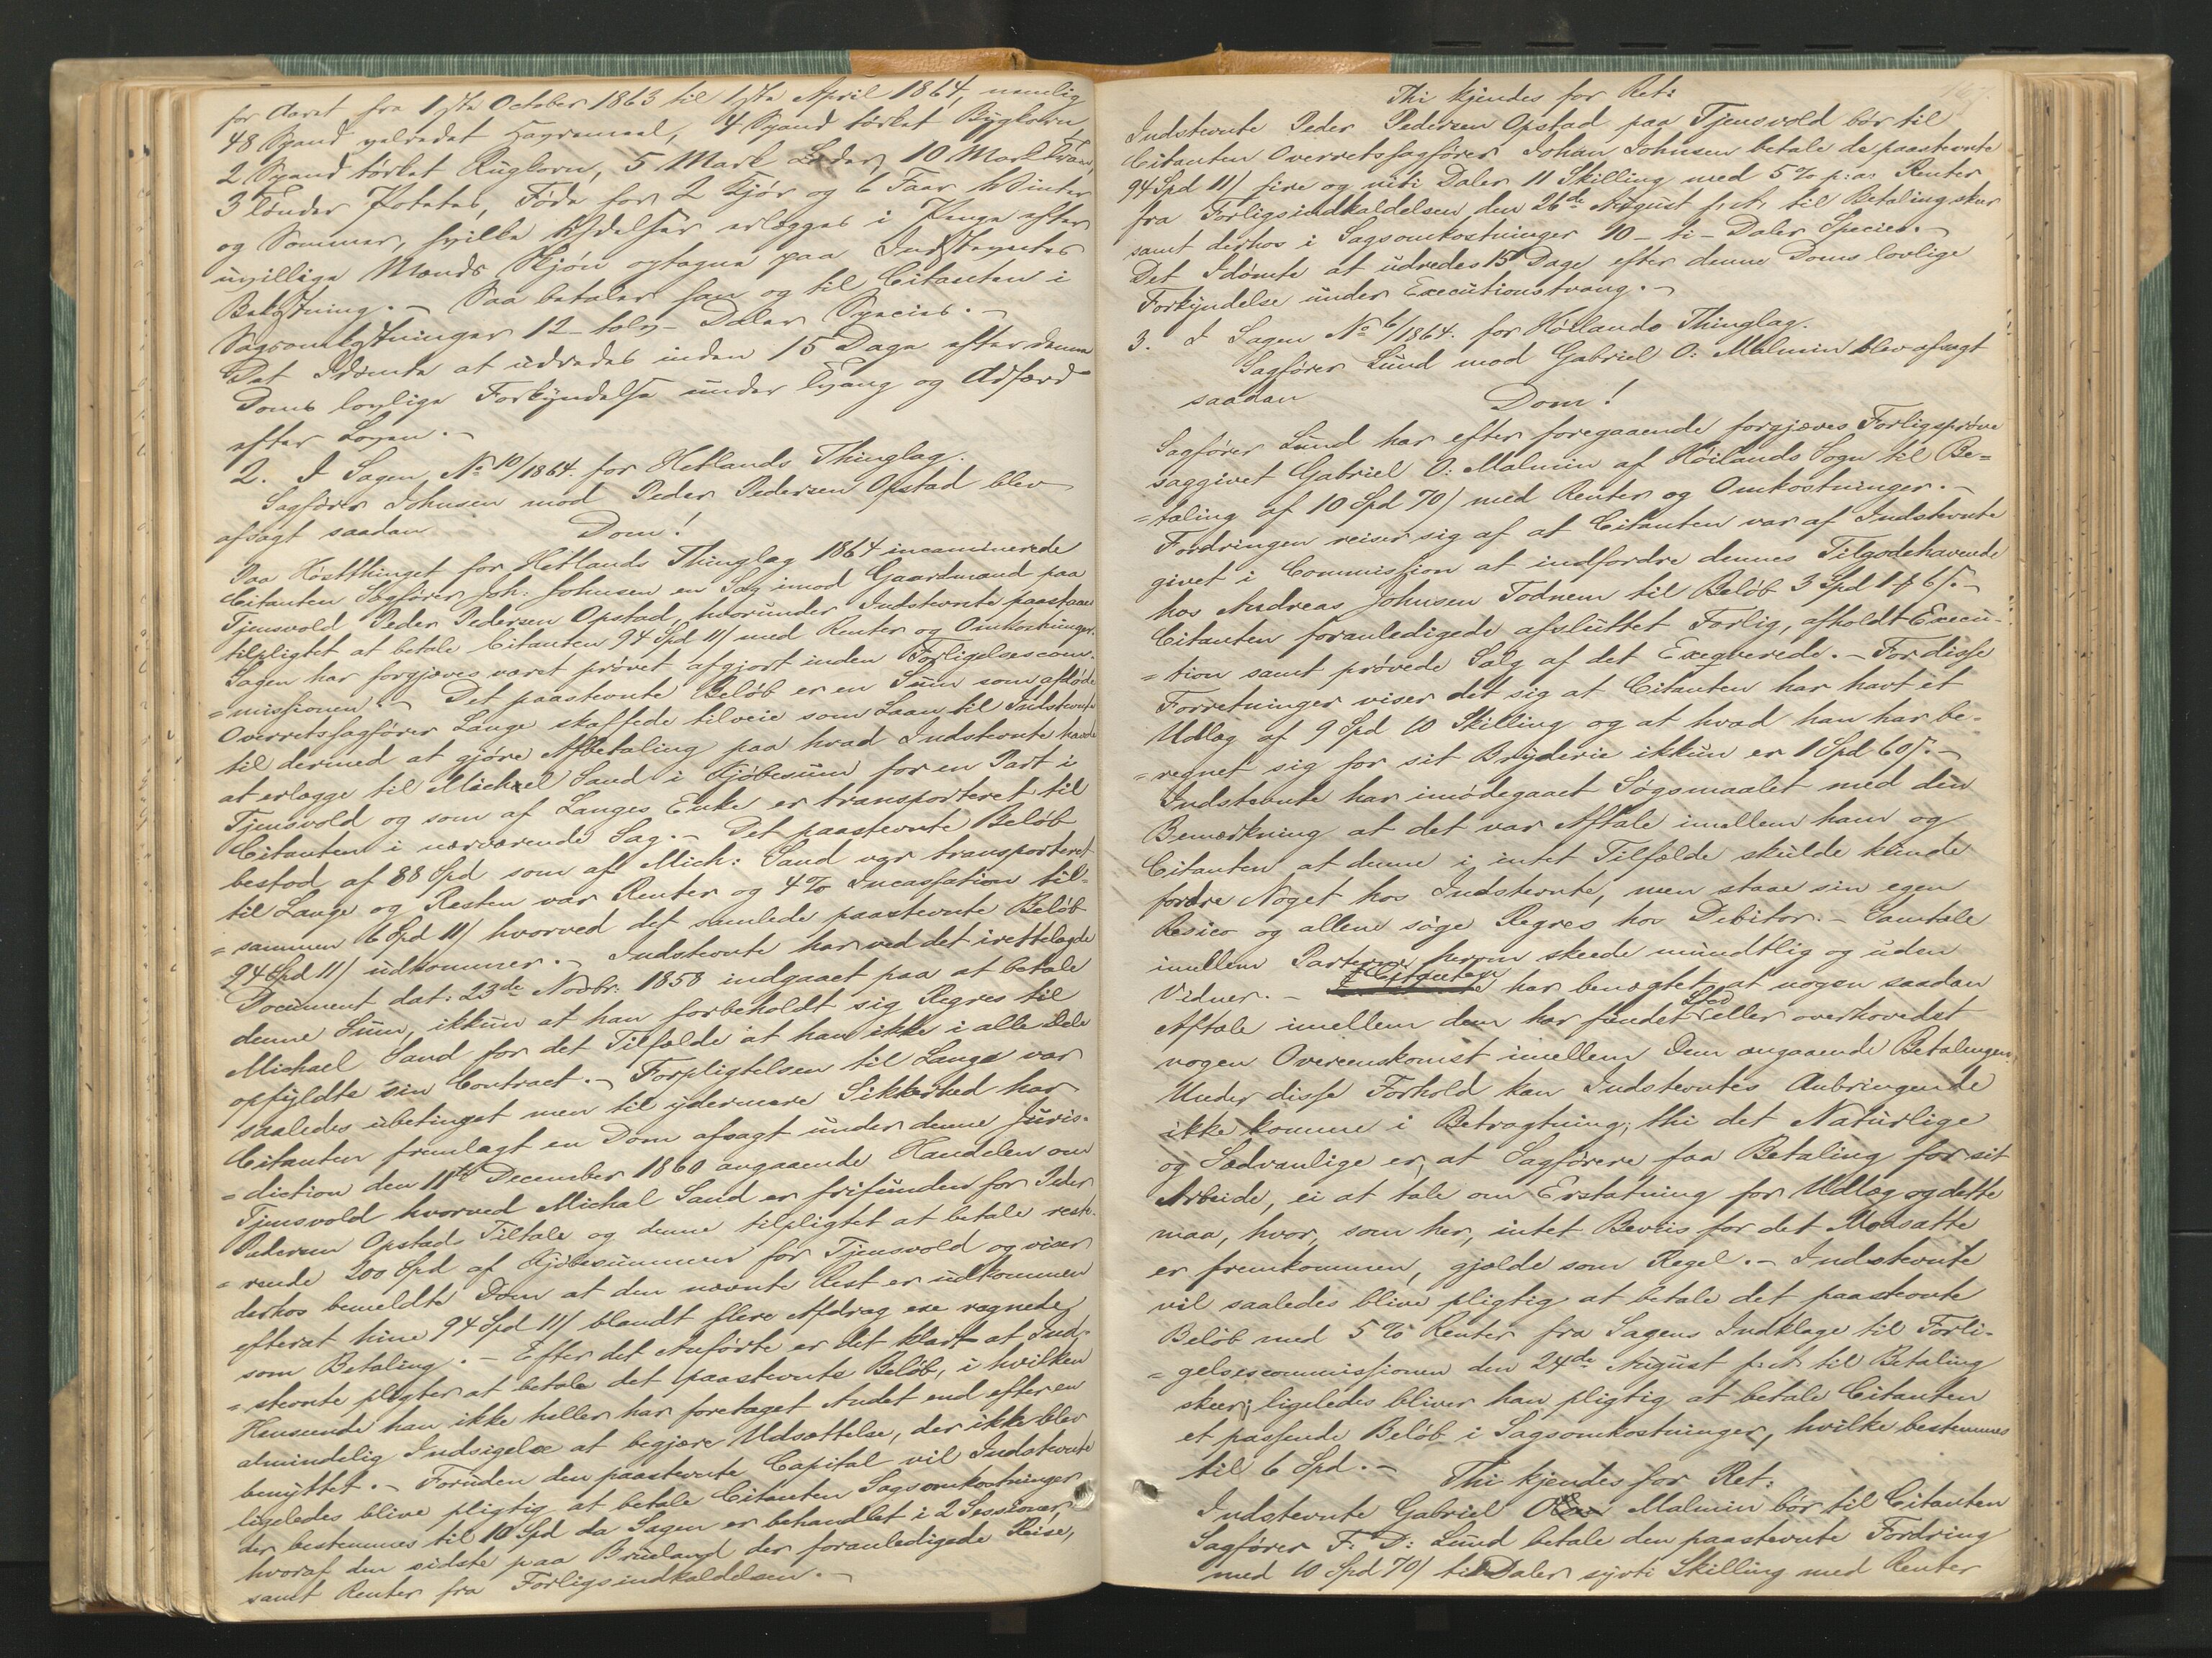 for Aaret fra 1ste October 1863 til 1ste April 1864, nemlig
48 Spand velredet Havremeel, 4 Spand tørket Bygkorn,
2 Spand tørket Rugkorn, 5 Mark Læder, 10 Mark Tran,
3 Tønder Potetes, Føde for 2 Kjør og 6 Faar Vinter
og Sommer, hvilke Ydelser erlægges i Penge efter
uvillige Mænds Skjøn optagne paa Indstevntes
Bekostning. – Saa betaler han og til Citanten i
Sagsomkostninger 12 – tolv – Daler Species. –
Det Idømte at udredes inden 15 Dage efter denne
Doms lovlige Forkyndelse under Tvang og Adfærd
efter Loven. –
2. I Sagen No 10/1864. for Hetlands Thinglag.
Sagfører Johnsen mod Peder Pedersen Opstad blev
afsagt saadan Dom!
Paa Høstthinget for Hetlands Thinglag 1864 incaminerede
Citanten Sagfører Joh: Johnsen en Sag imod Gaardmand paa
Tjensvold Peder Pedersen Opstad, hvorunder Indstevnte paastaaes
tilpligtet at betale Citanten 94 Spd 11 s med Renter og Omkostninger.
Sagen har forgjæves været prøvet afgjort inden Forligelsescom-
=missionen. – Det paastevnte Beløb er en Sum som afdøde
Overretssagfører Lange skaffede tilveie som Laan til Indstevnte
til dermed at gjøre Afbetaling paa hvad Indstevnte havde
at erlægge til Michael Sand i Kjøbesum for en Part i
Tjensvold og som af Langes Enke er transporteret til
Citanten i nærværende Sag. – Det paastevnte Beløb
bestod af 88 Spd som af Mich: Sand var transporteret
til Lange og Resten var Renter og 4 % Incassation til-
=sammen 6 Spd 11 s hvorved det samlede paastevnte Beløb
94 Spd 11 s udkommer. – Indstevnte har ved det irettelagde
Document dat: 23de Novbr: 1858 indgaaet paa at betale
denne Sum, ikkun at han forbeholdt sig Regres til
Michael Sand for det Tilfælde at han ikke i alle Dele
opfyldte sin Contract. – Forpligtelsen til Lange var
saaledes ubetinget men til ydermere Sikkerhed har
Citanten fremlagt en Dom afsagt under denne Juris-
=diction den 11te December 1860 angaaende Handelen om
Tjensvold hvorved Michal Sand er frifunden for Peder
Pedersen Opstads Tiltale og denne tilpligtet at betale reste-
=rende 200 Spd af Kjøbesummen for Tjensvold og viser
derhos bemeldte Dom at den nævnte Rest er udkommen
efterat hine 94 Spd 11 s blandt flere Afdrag ere regnede
som Betaling. – Efter det Anførte er det klart at Ind-
=stevnte pligter at betale det paastevnte Beløb, i hvilken
Henseende han ikke heller har foretaget Andet end efter en
almindelig Indsigelse at begjære Udsættelse, der ikke blev
benyttet. – Foruden den paastevnte Capital vil Indstevnte
ligeledes blive pligtig at betale Citanten Sagsomkostninger
der bestemmes til 10 Spd da Sagen er behandlet i 2 Sessioner,
hvoraf den sidste paa Brueland der foranledigede Reise,
samt Renter fra Forligsindkaldelsen. –
Thi kjendes for Ret:
Indstevnte Peder Pedersen Opstad paa Tjensvold bør til
Citanten Overretssagfører Johan Johnsen betale de paastevnte
94 Spd 11 s fire og niti Daler 11 Skilling med 5 % p: a: Renter
fra Forligsindkaldelsen den 26de August f. A. til Betaling skeer
samt derhos i Sagsomkostninger 10 – ti – Daler Species. –
Det Idømte at udredes 15 Dage efter denne Doms lovlige
Forkyndelse under Executionstvang. –
3. I Sagen No 6/1864. for Høilands Thinglag.
Sagfører Lund mod Gabriel O: Malmin blev afsagt
saadan Dom!
Sagfører Lund har efter foregaaende forgjæves Forligsprøve
saggivet Gabriel O: Malmin af Høilands Sogn til Be=
=taling af 10 Spd 70 s med Renter og Omkostninger. –
Fordringen reiser sig af at Citanten var af Indstevnte
givet i Commission at indfordre dennes Tilgodehavende
hos Andreas Johnsen Todnem til Beløb 3 Spd 1 # 6 s. –
Citanten foranledigede afsluttet Forlig, afholdt Execu-
=tion samt prøvede Salg af det Exeqverede. – For disse
Forretninger viser det sig at Citanten har havt et
Udlæg af 9 Spd 10 Skilling og at hvad han har be-
=regnet sig for sit Bryderie ikkun er 1 Spd 60 s. –
Indstevnte har imødegaaet Søgsmaalet med den
Bemærkning at det var Aftale imellem ham og
Citanten at denne i intet Tilfælde skulde kunde
fordre Noget hos Indstevnte, men staae sin egen
Resico og allene søge Regres hos Debitor. – Samtale
imellem Parterne herom skeede mundtlig og uden
Vidner. – Citanten har benægtet at nogen saadan
Aftale imellem dem har fundet Sted eller overhovedet
nogen Overeenskomst imellem Dem angaaende Betalingen.
Under disse Forhold kan Indstevntes Anbringende
ikke komme i Betragtning; thi det Naturlige
og Sædvanlige er, at Sagførere faa Betaling for sit
Arbeide, ei at tale om Erstatning for Udlæg og dette
maa, hvor, som her, intet Beviis for det Modsatte
er fremkommen, gjælde som Regel. – Indstevnte
vil saaledes blive pligtig at betale det paastevnte
Beløb med 5 % Renter fra Sagens Indklage til Forli-
=gelsescommissionen den 24de August f: A: til Betaling
skeer; ligeledes bliver han pligtig at betale Citanten
et passende Beløb i Sagsomkostninger, hvilke bestemmes
til 6 Spd. – Thi kjendes for Ret:
Indstevnte Gabriel Malmin bør til Citanten
Sagfører F: D: Lund betale den paastevnte Fordring
med 10 Spd 70 s ti Daler sytti Skilling med Renter